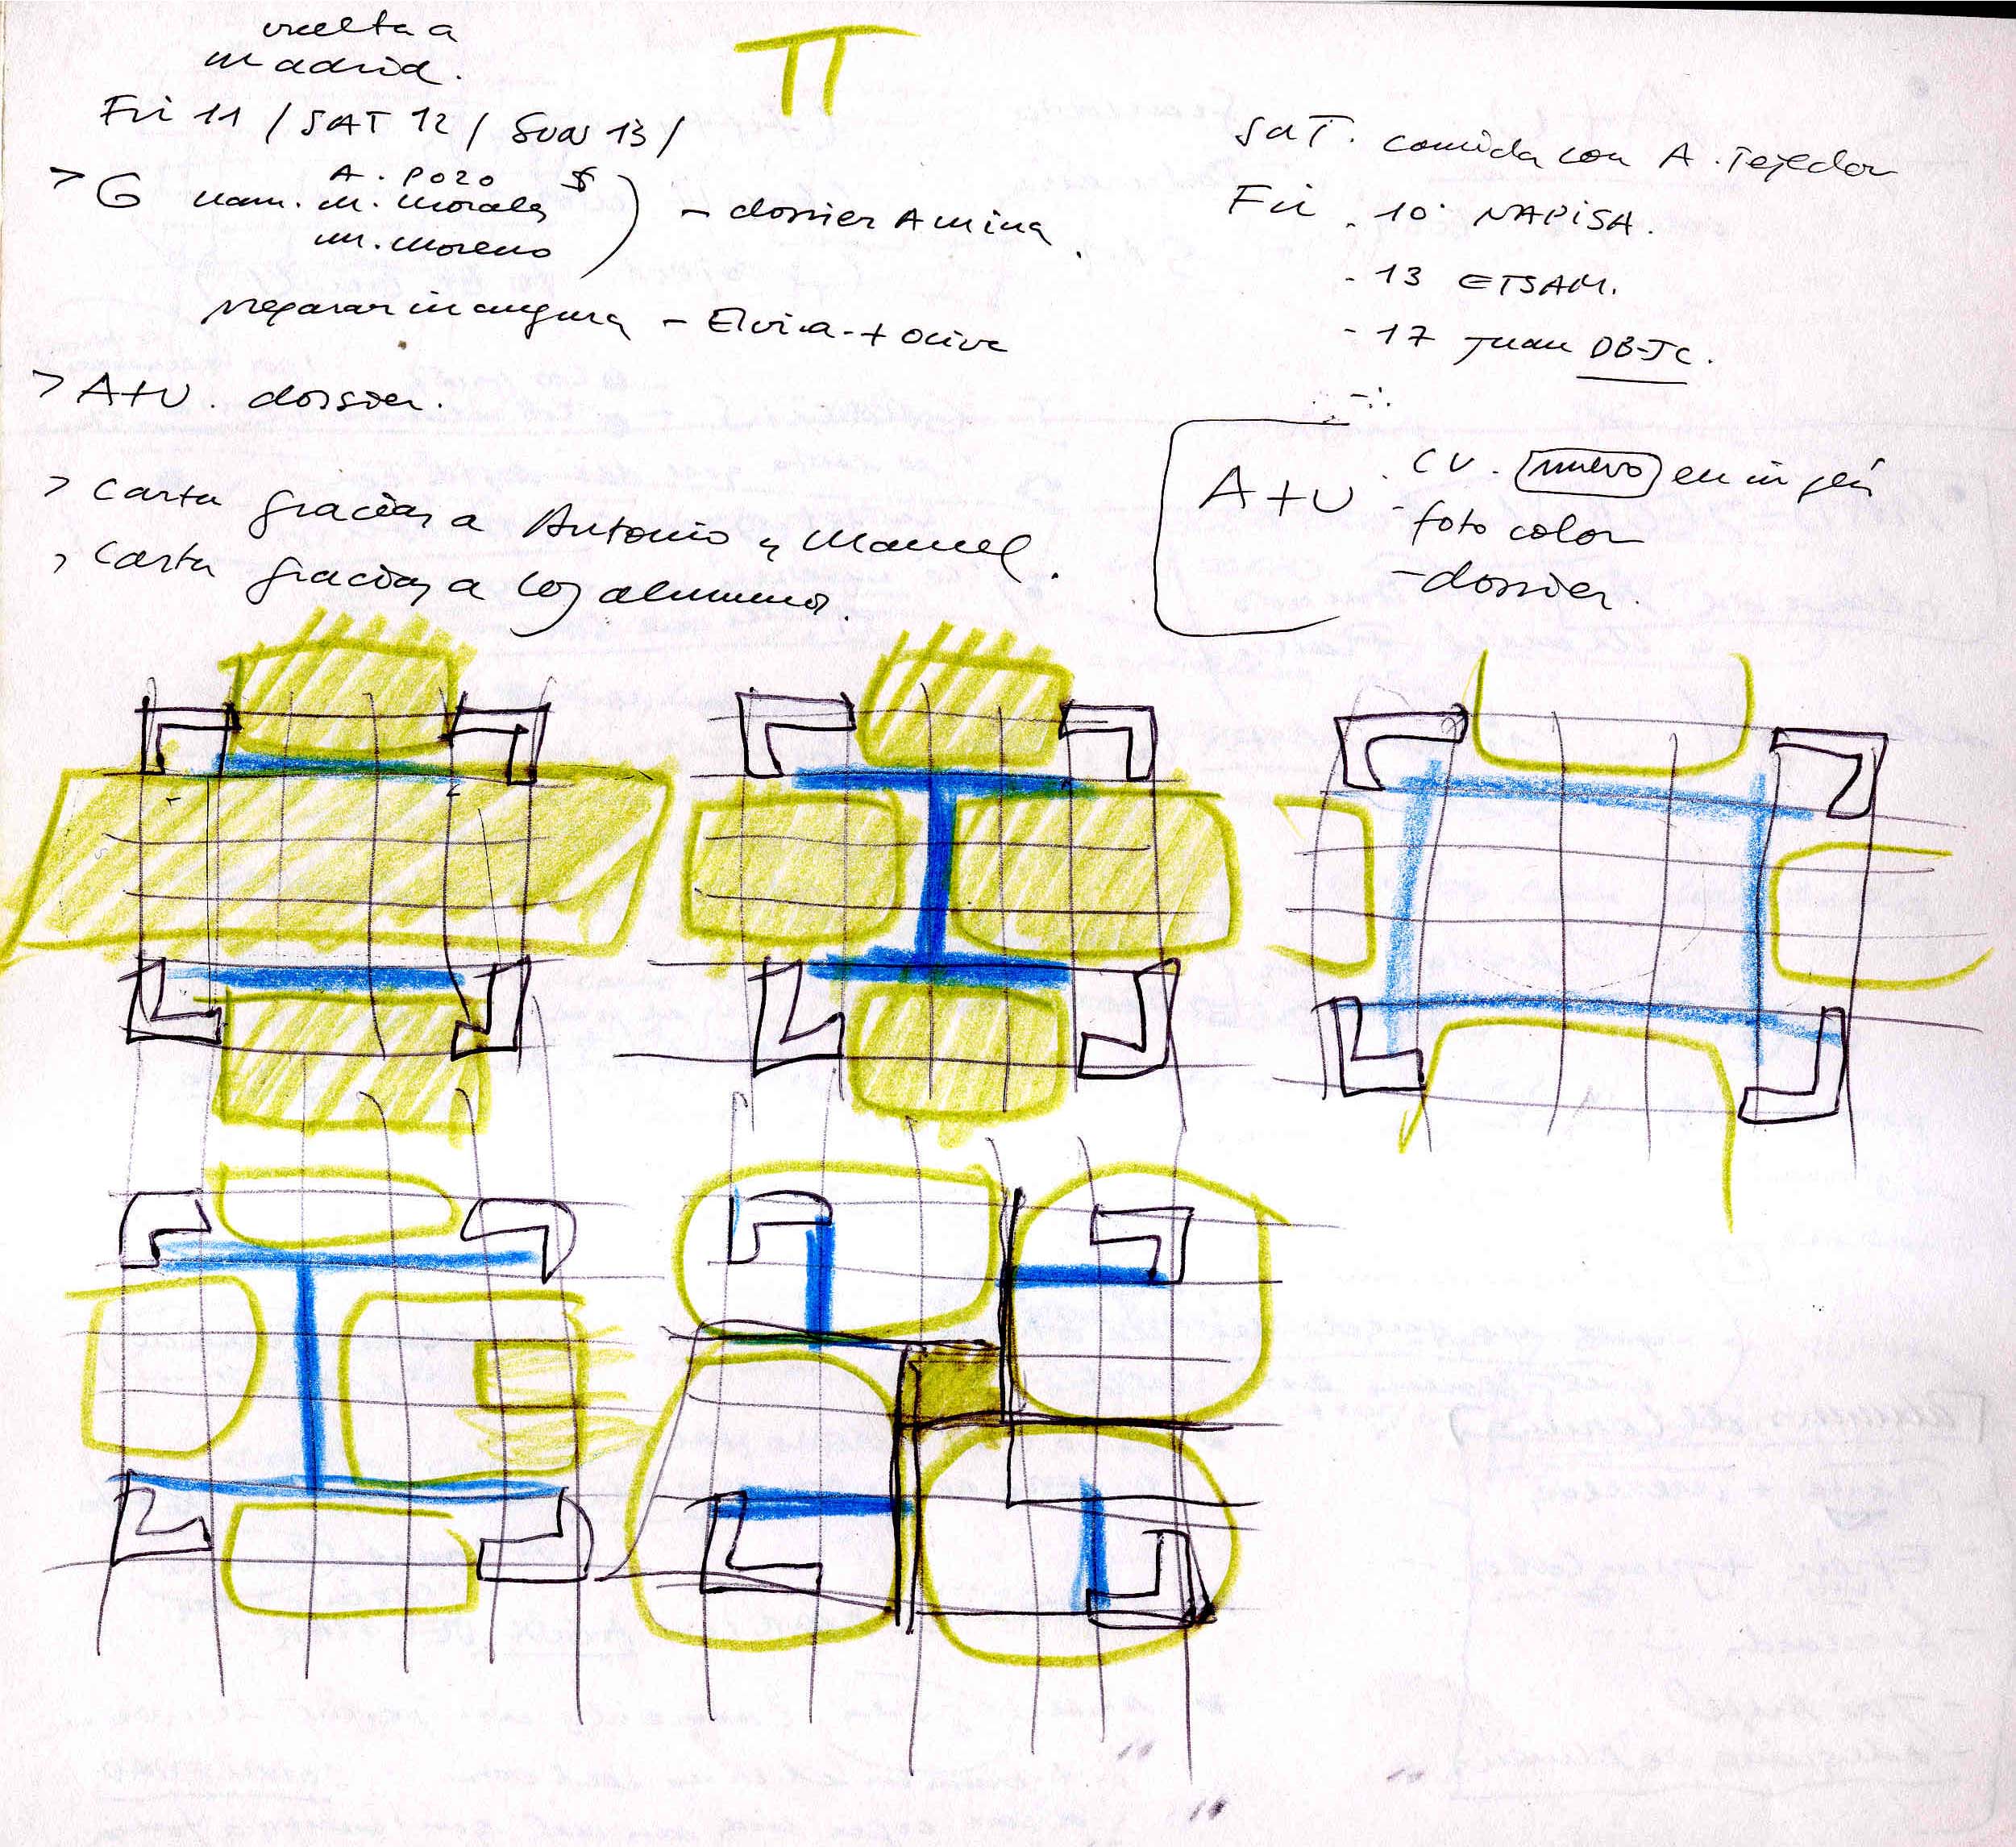 vuelta a
madrid.
Fri 11 / SAT 12 / SUN 13 /
> G nam. A. Pozo
M. Morales
M. Moreno
- dossier Amina.
preparar inaugura - Elvira +
> A+U. dossier.
> Carta gracias a Antonio y Manuel.
> Carta gracias a los alumnos.
SAT. comida con A. Tejedor
Fri . 10 NAPISA.
- 13 ETSAM.
- 17 Juan DB-JC.
A+U . CV. nuevo en inglés
- foto color
- dossier.